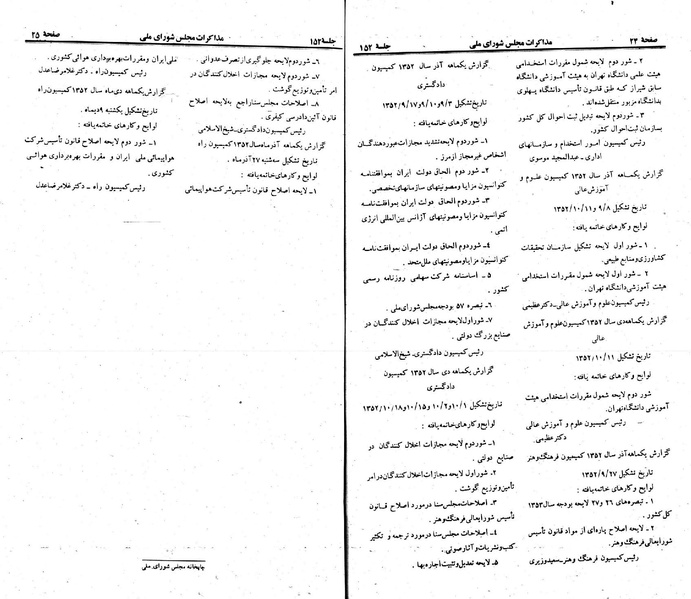 صفحهٔ ۲۴ مذاکرات مجلس شورای ملی جلسهٔ ۱۵۲
۲ ـ شور دوم لایحه شمول مقررات استخدامی
هیئت علمی دانشگاه تهران به هیئت آموزشی دانشگاه
سابق شیراز که طبق قانون تأسیس دانشگاه پهلوی
بدانشگاه مزبور منتقل شده‌اند.
۳ ـ شور دوم لایحه تبدیل ثبت احوال کل کشور
بسازمان ثبت احوال کشور.
رئیس کمیسیون امور استخدام و سازمانهای
اداری ـ عبدالمجید موسوی
گزارش یکماهه آذر سال ۱۳۵۲ کمیسیون علوم و
آموزش عالی
تاریخ تشکیل ۹/۸ و ۱۳۵۲/۱۰/۱۱
لوایح و کارهای خاتمه یافته:
۱ ـ شور اول لایحه تشکیل سازمان تحقیقات
کشاورزی و منابع طبیعی.
۲ ـ شور اول لایحه شمول مقررات استخدامی
هیئت آموزشی دانشگاه تهران.
رئیس کمیسیون علوم و آموزش عالی ـ دکتر عظیمی
گزارش یکماهه دی سال ۱۳۵۲ کمیسیون علوم و آموزش
عالی
تاریخ تشکیل ۱۳۵۲/۱۰/۱۱
لوایح و کارهای خاتمه یافته:
شور دوم لایحه شمول مقررات استخدامی هیئت
آموزشی دانشگاه تهران.
رئیس کمیسیون علوم و آموزش عالی
دکتر عظیمی
گزارش یکماهه آذر سال ۱۳۵۲ کمیسیون فرهنگ و هنر
تاریخ تشکیل ۱۳۵۲/۹/۲۷
لوایح و کارهای خاتمه یافته:
۱ ـ تبصره‌های ۲۶ و ۲۷ لایحه بودجه سال ۱۳۵۳
کل کشور.
۲ ـ لایحه اصلاح پاره‌ای از مواد قانون تأسیس
شورایعالی فرهنگ و هنر.
رئیس کمیسیون فرهنگ و هنر ـ سعید وزیری
گزارش یکماهه آذر سال ۱۳۵۲ کمیسیون
دادگستری
تاریخ تشکیل ۹/۳ و ۹/۱۰ و ۱۳۵۲/۹/۱۷
لوایح و کارهای خاتمه یافته:
۱ ـ شور دوم لایحه تشدید مجازات عبور دهندگان
اشخاص غیر مجاز از مرز.
۲ ـ شور دوم الحاق دولت ایران بموافقتنامه
کنوانسیون مزایا و مصونیتهای سازمانهای تخصصی.
۳ ـ شور دوم الحاق دولت ایران بموافقتنامه
کنوانسیون مزایا و مصونیتهای آژانس بین‌المللی انرژی
اتمی.
۴ ـ شور دوم الحاق دولت ایران بموافقتنامه
کنوانسیون مزایا و مصونیتهای ملل متحد.
۵ ـ اساسنامه شرکت سهامی روزنامه رسمی
کشور.
۶ ـ تبصره ۵۷ بودجه مجلس شورای ملی.
۷ ـ شور اول لایحه مجازات اخلال کنندگان در
صنایع بزرگ دولتی.
رئیس کمیسیون دادگستری ـ شیخ‌الاسلامی
گزارش یکماهه دی سال ۱۳۵۲ کمیسیون
دادگستری
تاریخ تشکیل ۱۰/۱ و ۱۰/۲ و ۱۰/۱۵ و ۱۳۵۲/۱۰/۱۸
لوایح و کارهای خاتمه یافته:
۱ ـ شور دوم لایحه مجازات اخلال کنندگان در
صنایع دولتی.
۲ ـ شور اول لایحه مجازات اخلال کنندگان در امر
تأمین و توزیع گوشت.
۳ ـ اصلاحات مجلس سنا در مورد اصلاح قانون
تأسیس شورایعالی فرهنگ و هنر.
۴ ـ اصلاحات مجلس سنا در مورد ترجمه و تکثیر
کتب و نشریات و آثار صوتی.
۵ ـ لایحه تعدیل و تثبیت اجاره بها.
جلسهٔ ۱۵۲ مذاکرات مجلس شورای ملی صفحهٔ ۲۵
۶ ـ شور دوم لایحه جلوگیری از تصرف عدوانی.
۷ ـ شور دوم لایحه مجازات اخلال کنندگان در
امر تأمین و توزیع گوشت.
۸ ـ اصلاحات مجلس سنا راجع به لایحه اصلاح
قانون آئین دادرسی کیفری.
رئیس کمیسیون دادگستری ـ شیخ‌الاسلامی
گزارش یکماهه آذرماه سال ۱۳۵۲ کمیسیون راه
تاریخ تشکیل سه‌شنبه ۲۷ آذرماه.
لوایح و کارهای خاتمه یافته:
۱ ـ لایحه اصلاح قانون تأسیس شرکت هواپیمائی
ملی ایران و مقررات بهره‌برداری هوائی کشوری.
رئیس کمیسیون راه ـ دکتر غلامرضا عدل
گزارش یکماهه دی‌ماه سال ۱۳۵۲ کمیسیون راه
تاریخ تشکیل یکشنبه ۹ دیماه.
لوایح و کارهای خاتمه یافته:
۱ ـ شور دوم لایحه اصلاح قانون تأسیس شرکت
هواپیمائی ملی ایران و مقررات بهره‌برداری هوائی
کشوری.
رئیس کمیسیون راه ـ دکتر غلامرضا عدل
چاپخانه مجلس شورای ملی